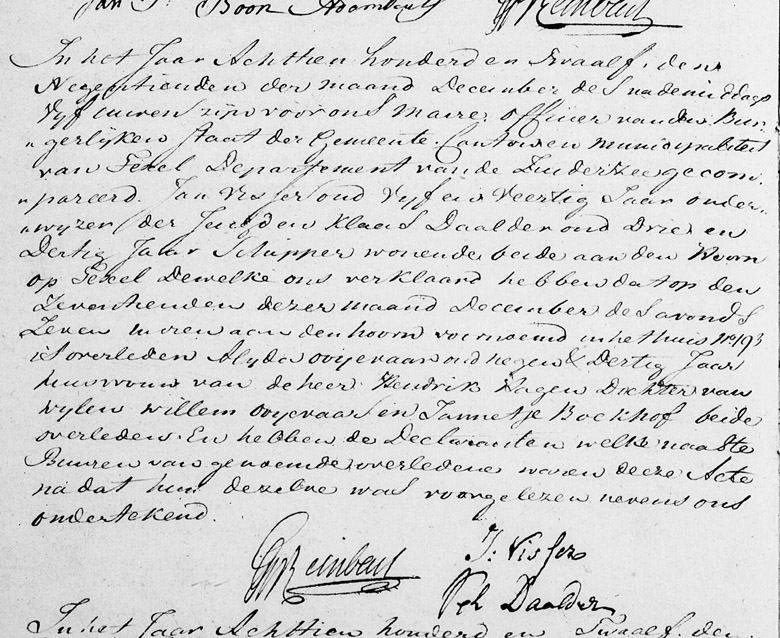 Jan P. Boon Adambach
In het Jaar Achttien honderd en Twaalf, den
Negentienden der maand December des nademiddags
Vyf uuren zijn voor ons Maire, officier van den Bur„
„gerlijken staat der Gemeente, Canton en municipaliteit
van Texel Departement van de Zuiderzee gecom„
„pareerd. Jan Visser oud Vyf en Veertig Jaar onder„
„wyzer der Jeugd en Klaas Daalder oud Drie en
Dertig Jaar Schipper wonende beide aan den Hoorn
op Texel Dewelke ons verklaard hebben dat op den
Zeventienden dezer maand December des avonds
Zeven uuren aan den hoorn voornoemd in het huis No 193
is overleden Alyda ooyevaar oud negen & Dertig Jaar
huisvrouw van de heer Hendrik Dochter van
wylen willem ooyevaar en Jannetje Boekhof beide
overleden. En hebben de Declaranten welke naaste
Buuren van genoemde overledene waren deeze Acte
na dat hun dezelve was voorgelezen nevens ons
ondertekend.
J: Visser
Daalder
In het Jaar Achttien honderd en Twaalf, den